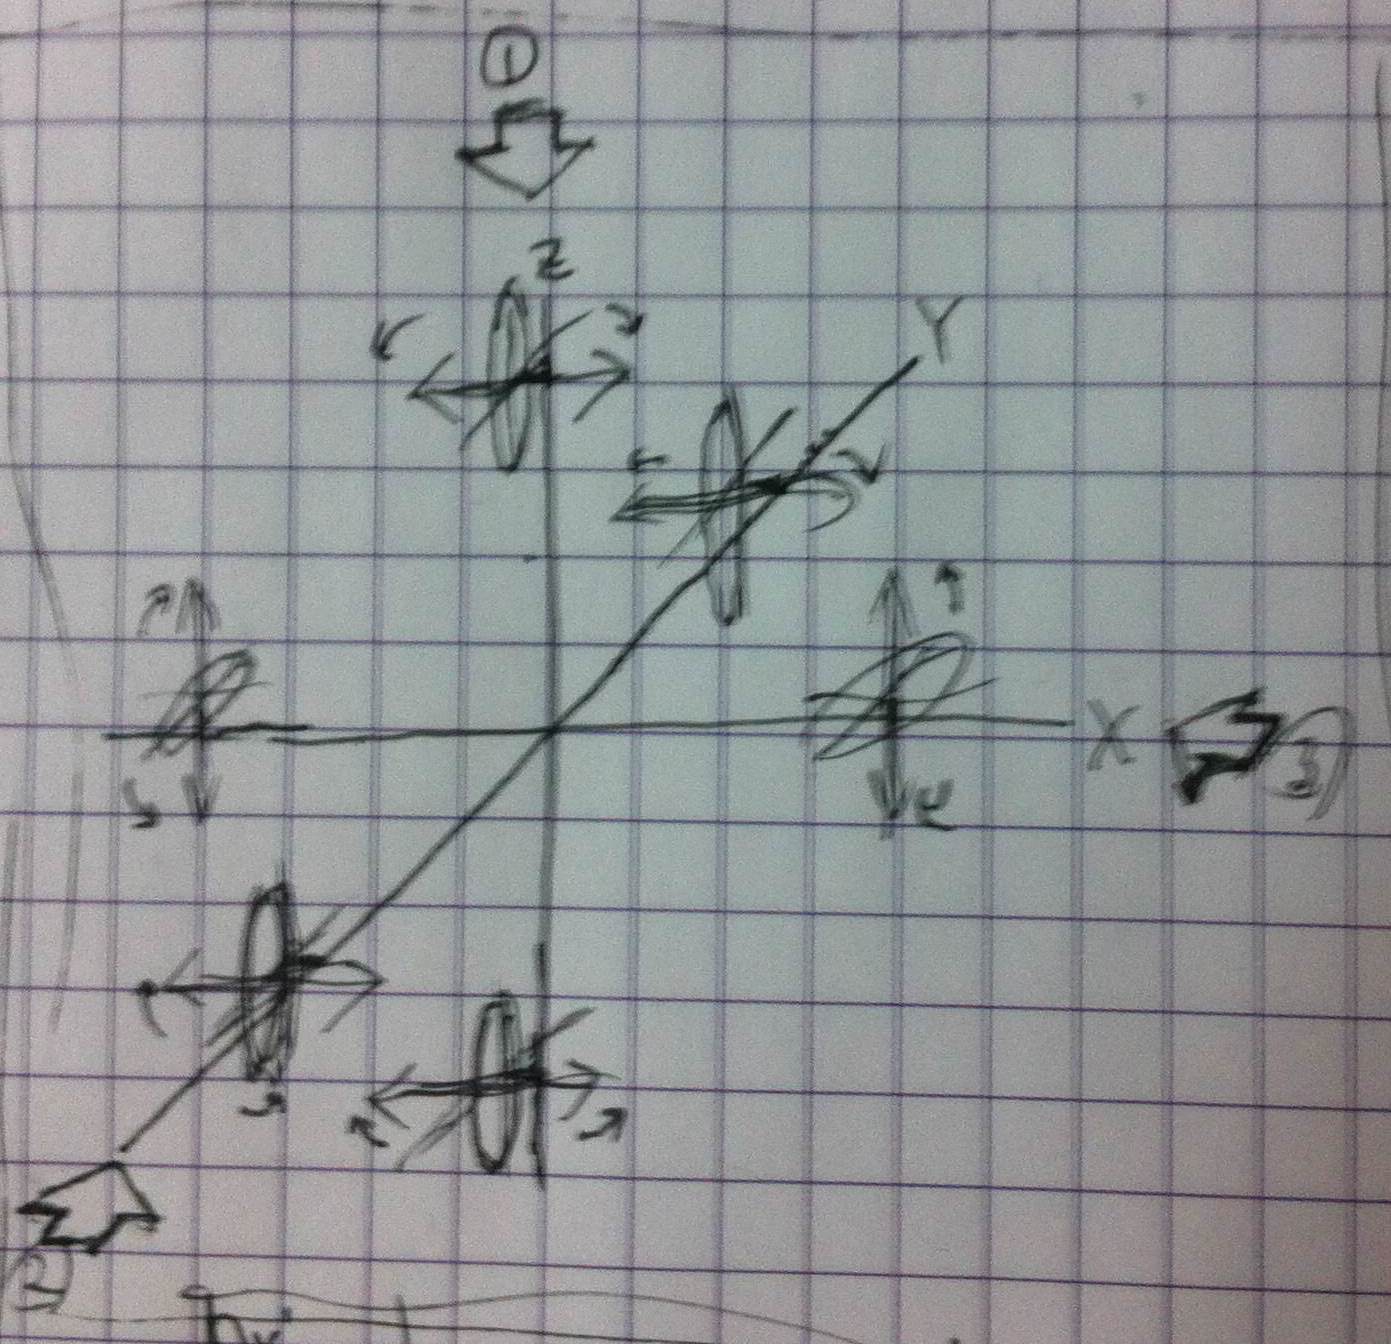 ①
Z
Y
X
3
2